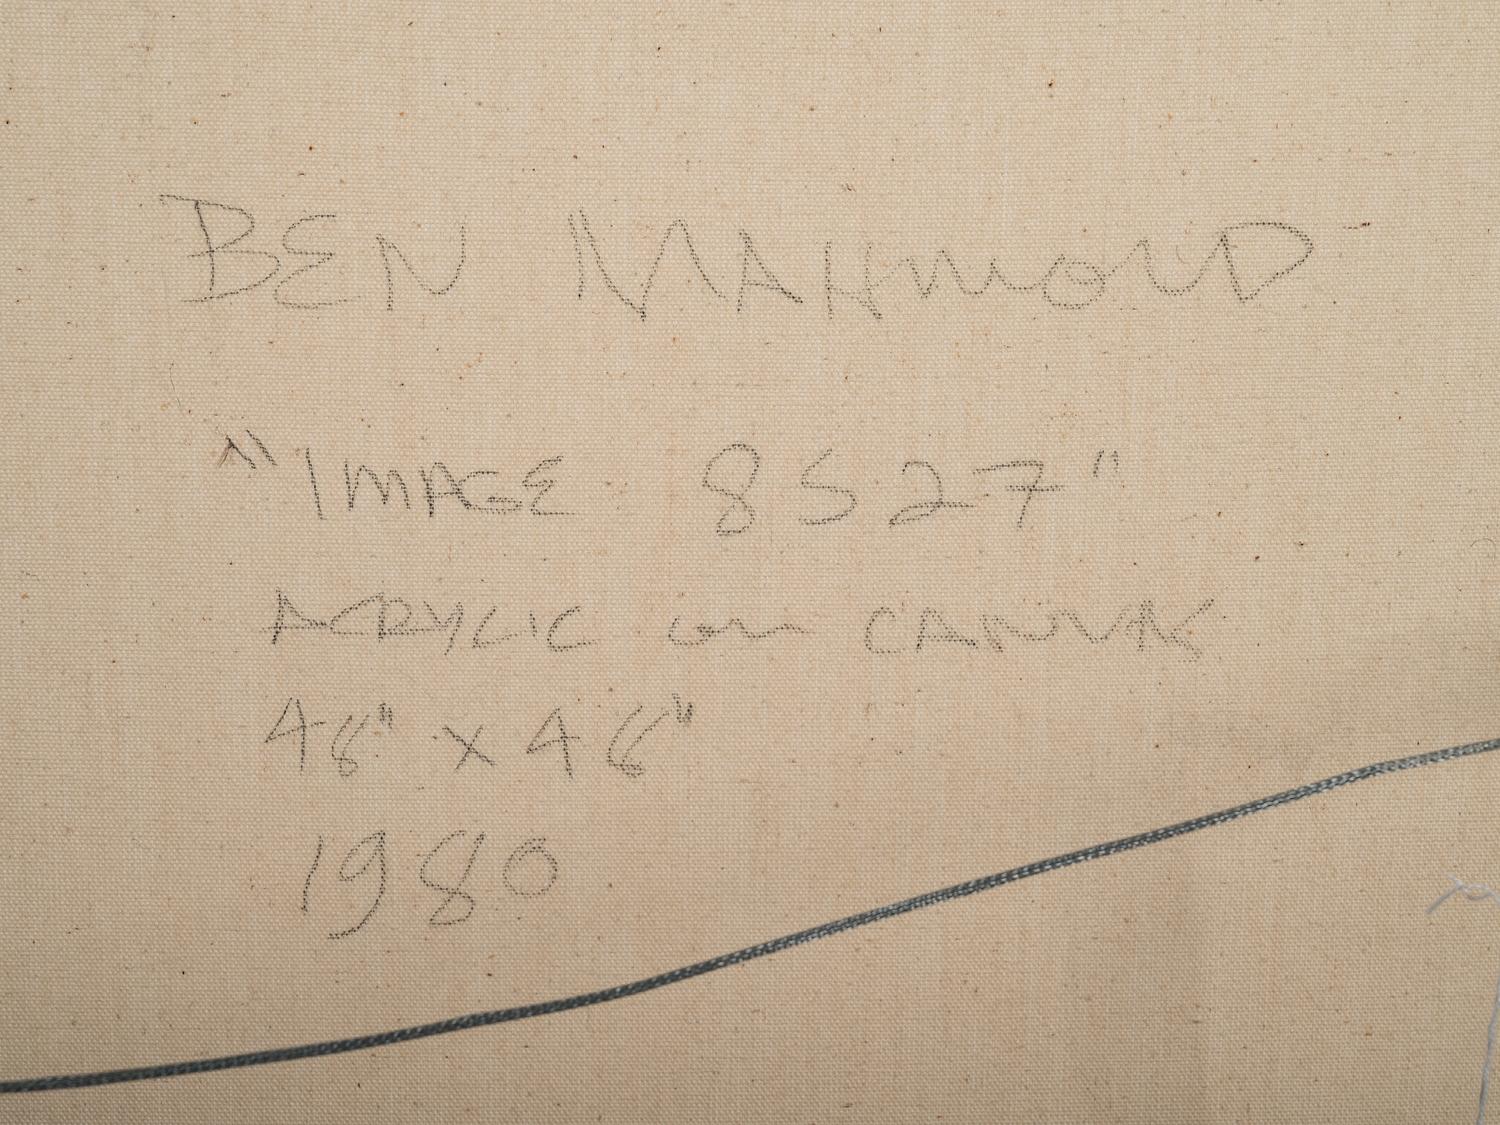 BEN MAHMOUD
"IMAGE 8527"
ACRYLIC on CANVAS
48" x 48"
1980